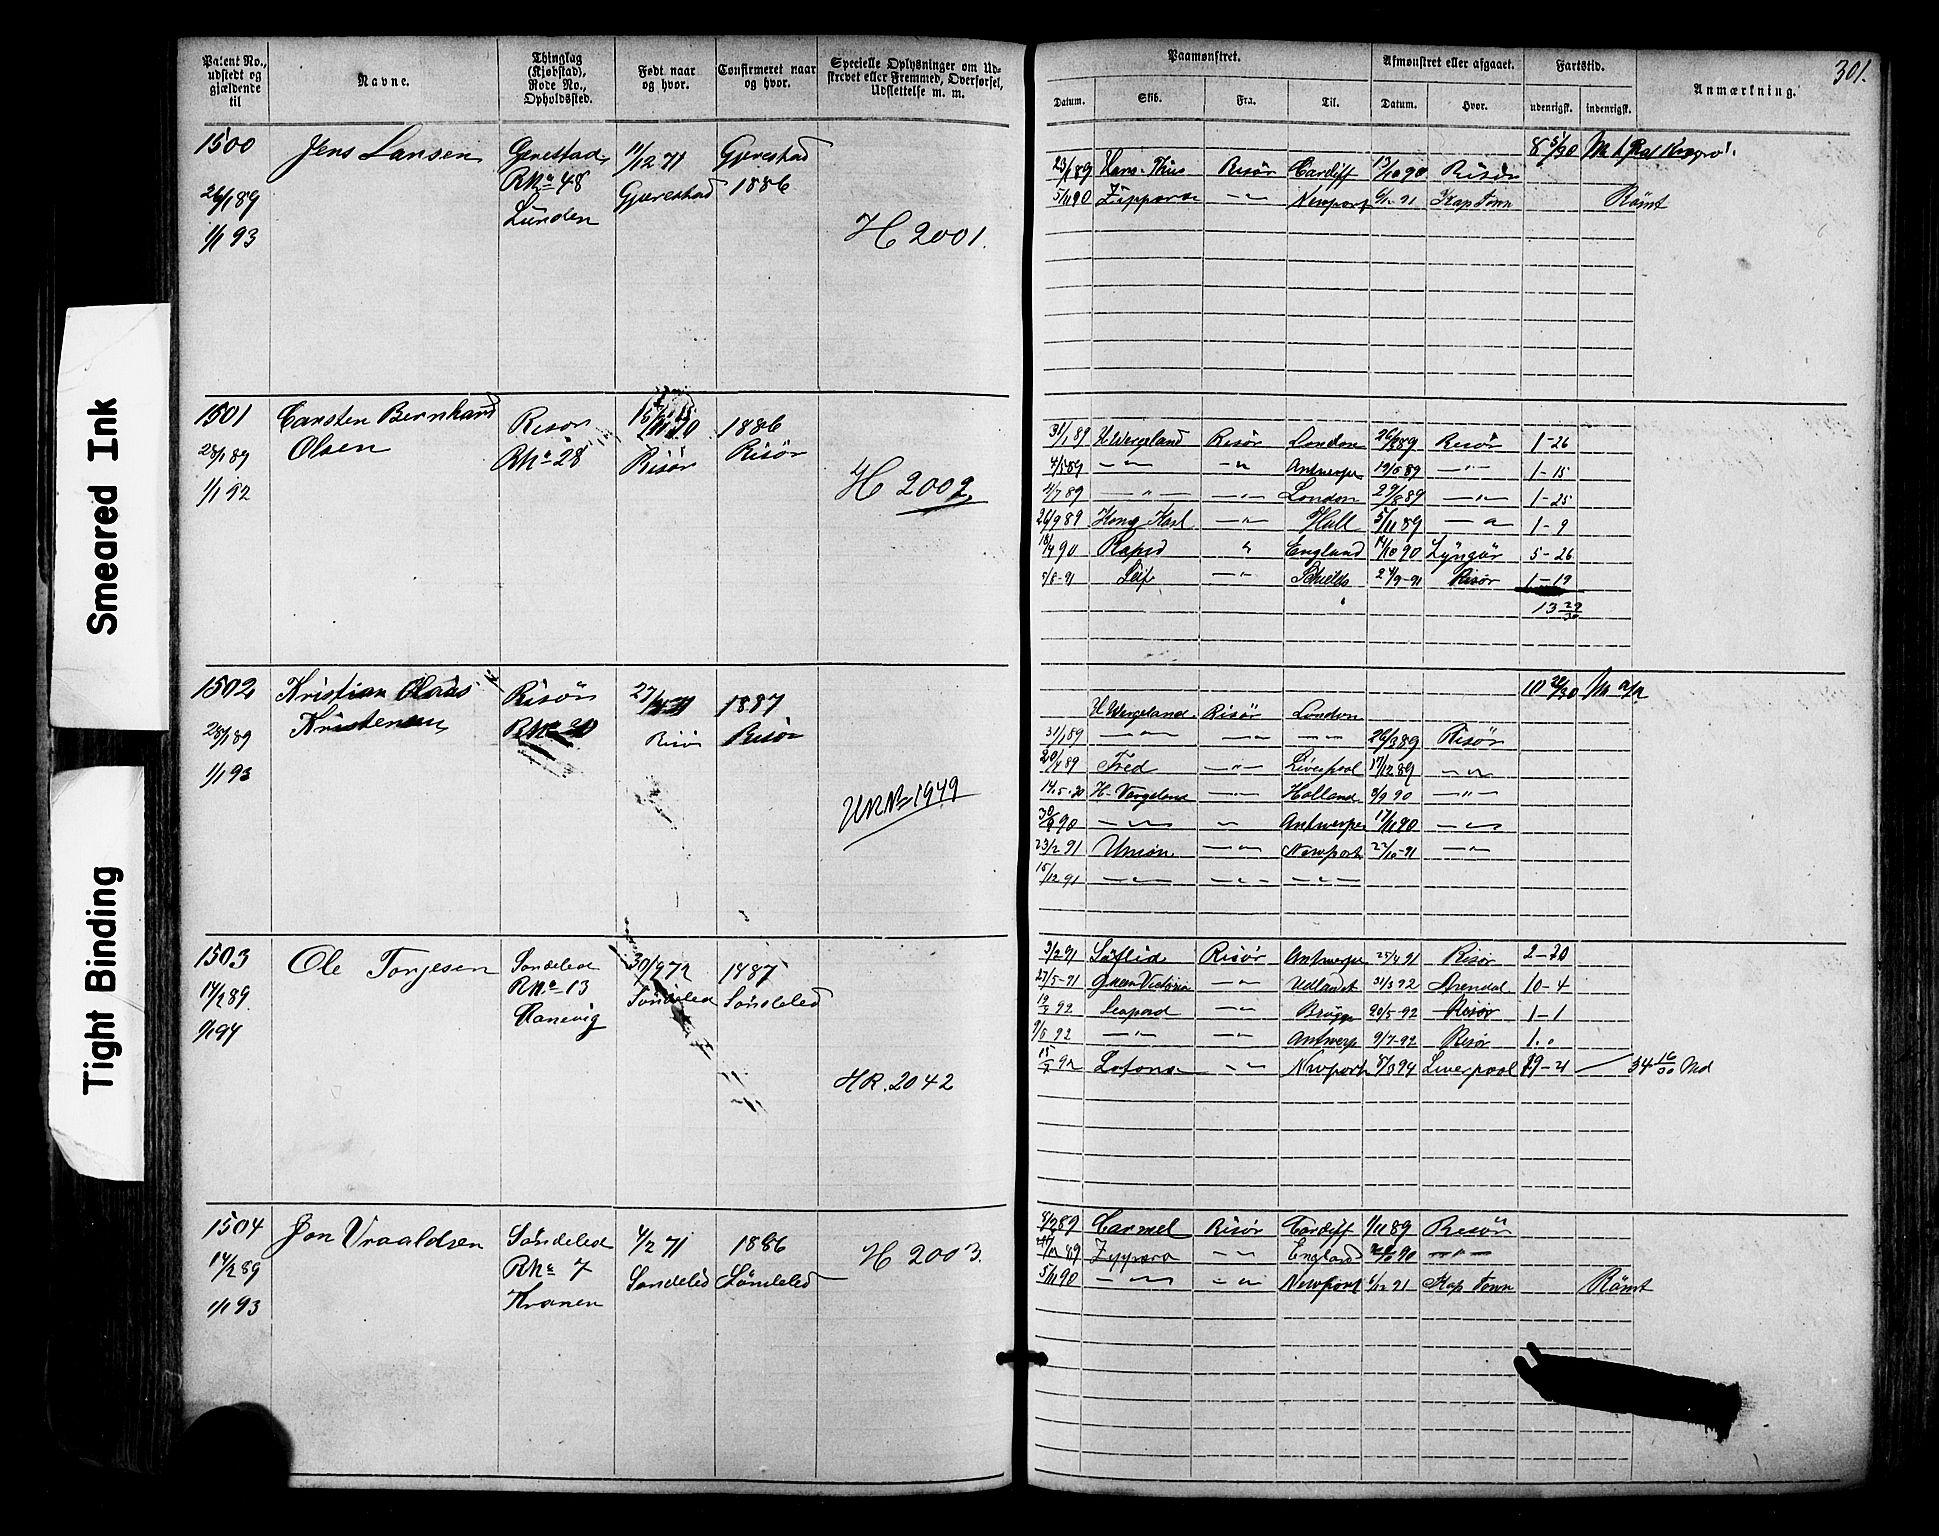 301.
Patent No., udstedt og gjældende til
Navne.
Thinglag (Kjøbstad), Rode No., Opholdssted.
Født naar og hvor.
Confirmeret naar og hvor.
Specielle Oplysninger om Udskrevet eller Fremmed, Overførsel, Udslettelse m. m.
Paamønstret.
Afmønstret eller afgaaet.
Fartstid.
Anmærkning.
Datum.
Skib.
Fra.
Til.
Datum.
Hvor.
udenrigsk.
indenrigsk.
1500
26/1 89
1/1 93
Jens Larsen
Gjerestad
RNo 48
Lunden
11/12 71
Gjerestad
Gjerestad
1886
H 2001.
8 5/30
23/1 89 Hans Thiis Risør Cardiff 13/10 90 Risør
5/11 90 Zippora — " — Newport 6/12 91 Kap Town Rømt
1501
28/1 89
1/1 92
Carsten Bernhard
Olsen
Risør
RNo 28
Risør
1886
Risør
H 2002
31/1 89 H Wergeland Risør London 26/3 89 Risør 1-26
4/5 89 — " — — " — Antwerpe 19/6 89 — " — 1-15
4/7 89 — " — — " — London 29/8 89 — " — 1-25
26/9 89 Kong Karl — " — Hull 5/11 89 — " — 1-9
18/4 90 Rapid " England 14/10 90 Lyngør 5-26
5/8-91 Leif — " — Schields 24/9-91 Risør 1-19
13 29/30
1502
28/1 89
1/1 93
Kristian Olaus
Kristensen
Risør
RNo 20
Risør
1887
Risør
URNo 1949
10 28/30
H Wergeland Risør London
31/1 89 — " — — " — — " — 26/3 89 Risør
20/4 89 Fred — " — Liverpool 17/12 89 — " —
14/5-90 H. Vergeland — " — Holland 3/9 90 — " —
30/9 90 — " — — " — Antwerpe 17/11 90 — " —
23/2 91 Union — " — Newport 22/10-91 — " —
15/12 91 — " — — " — — " —
1503
14/2 89
1/1 94
Ole Torjesen
Søndeled
RNo 13
Ranevig
30/9 72
Søndeled
1887
Søndeled
HR. 2042
3/2 91 Sølid Risør Antwerpe 25/4 91 Risør 2-20
27/5-91 Queen Victoria — " — Udlandet 31/3 92 Arendal 10-4
19/4 92 Leopard — " — Brügge 20/5-92 Risør 1-1
9/6 92 — " — — " — Antwerp 9/7-92 Risør 1.0
15/7 92 Lotona — " — Newport 5/3 94 Liverpool 19-21 34 16/30 Md
1504
14/2 89
1/1 93
Jon Vraaldsen
Søndeled
RNo 7
Kranen
4/2 71
Søndeled
1886
Søndeled
H 2003.
8/2 89 Carmel Risør Cardiff 1/11 89 Risør
Zippora — " — England — " —
5/11 90 — " — — " — Newport 6/12 91 Kap Town Rømt
Smeared Ink
Tight Binding